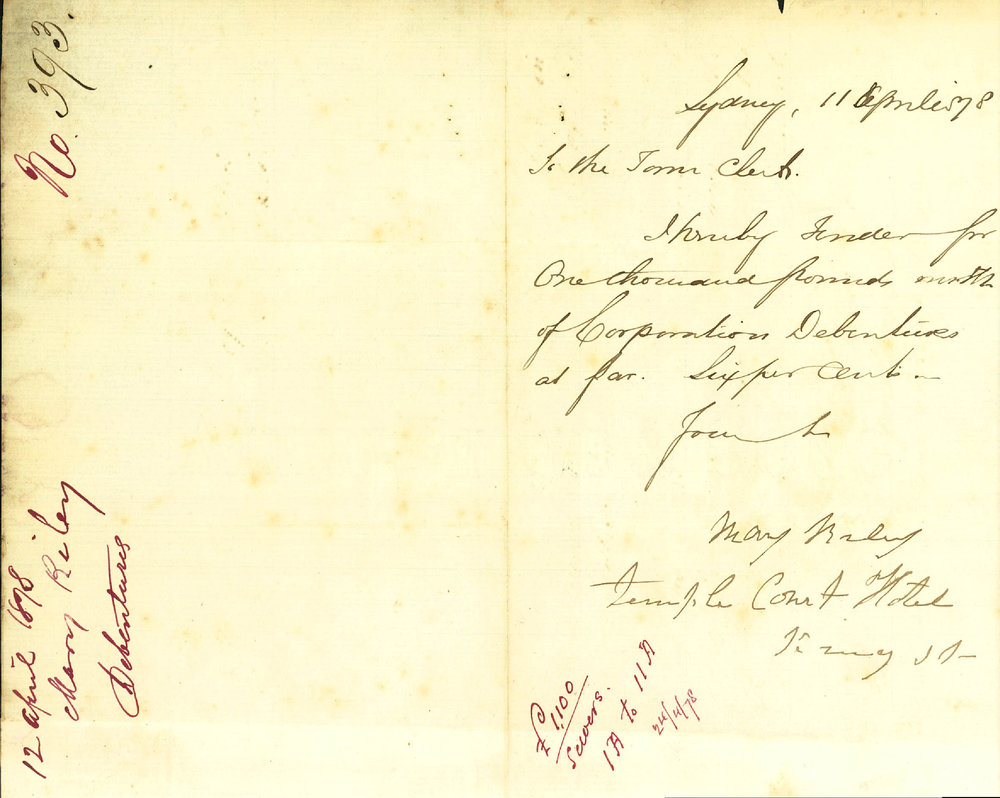 No. 393.
12 April 1878
Mary Riley
Debentures
Sydney, 11 April 1878
To the Town Clerk.
I hereby Tender for
One thousand pounds worth
of Corporation Debentures
at par. Six per Cent -
Mary Riley
Temple Court Hotel
King St
£1,100
Sewers.
1A to 11A
24/4/78